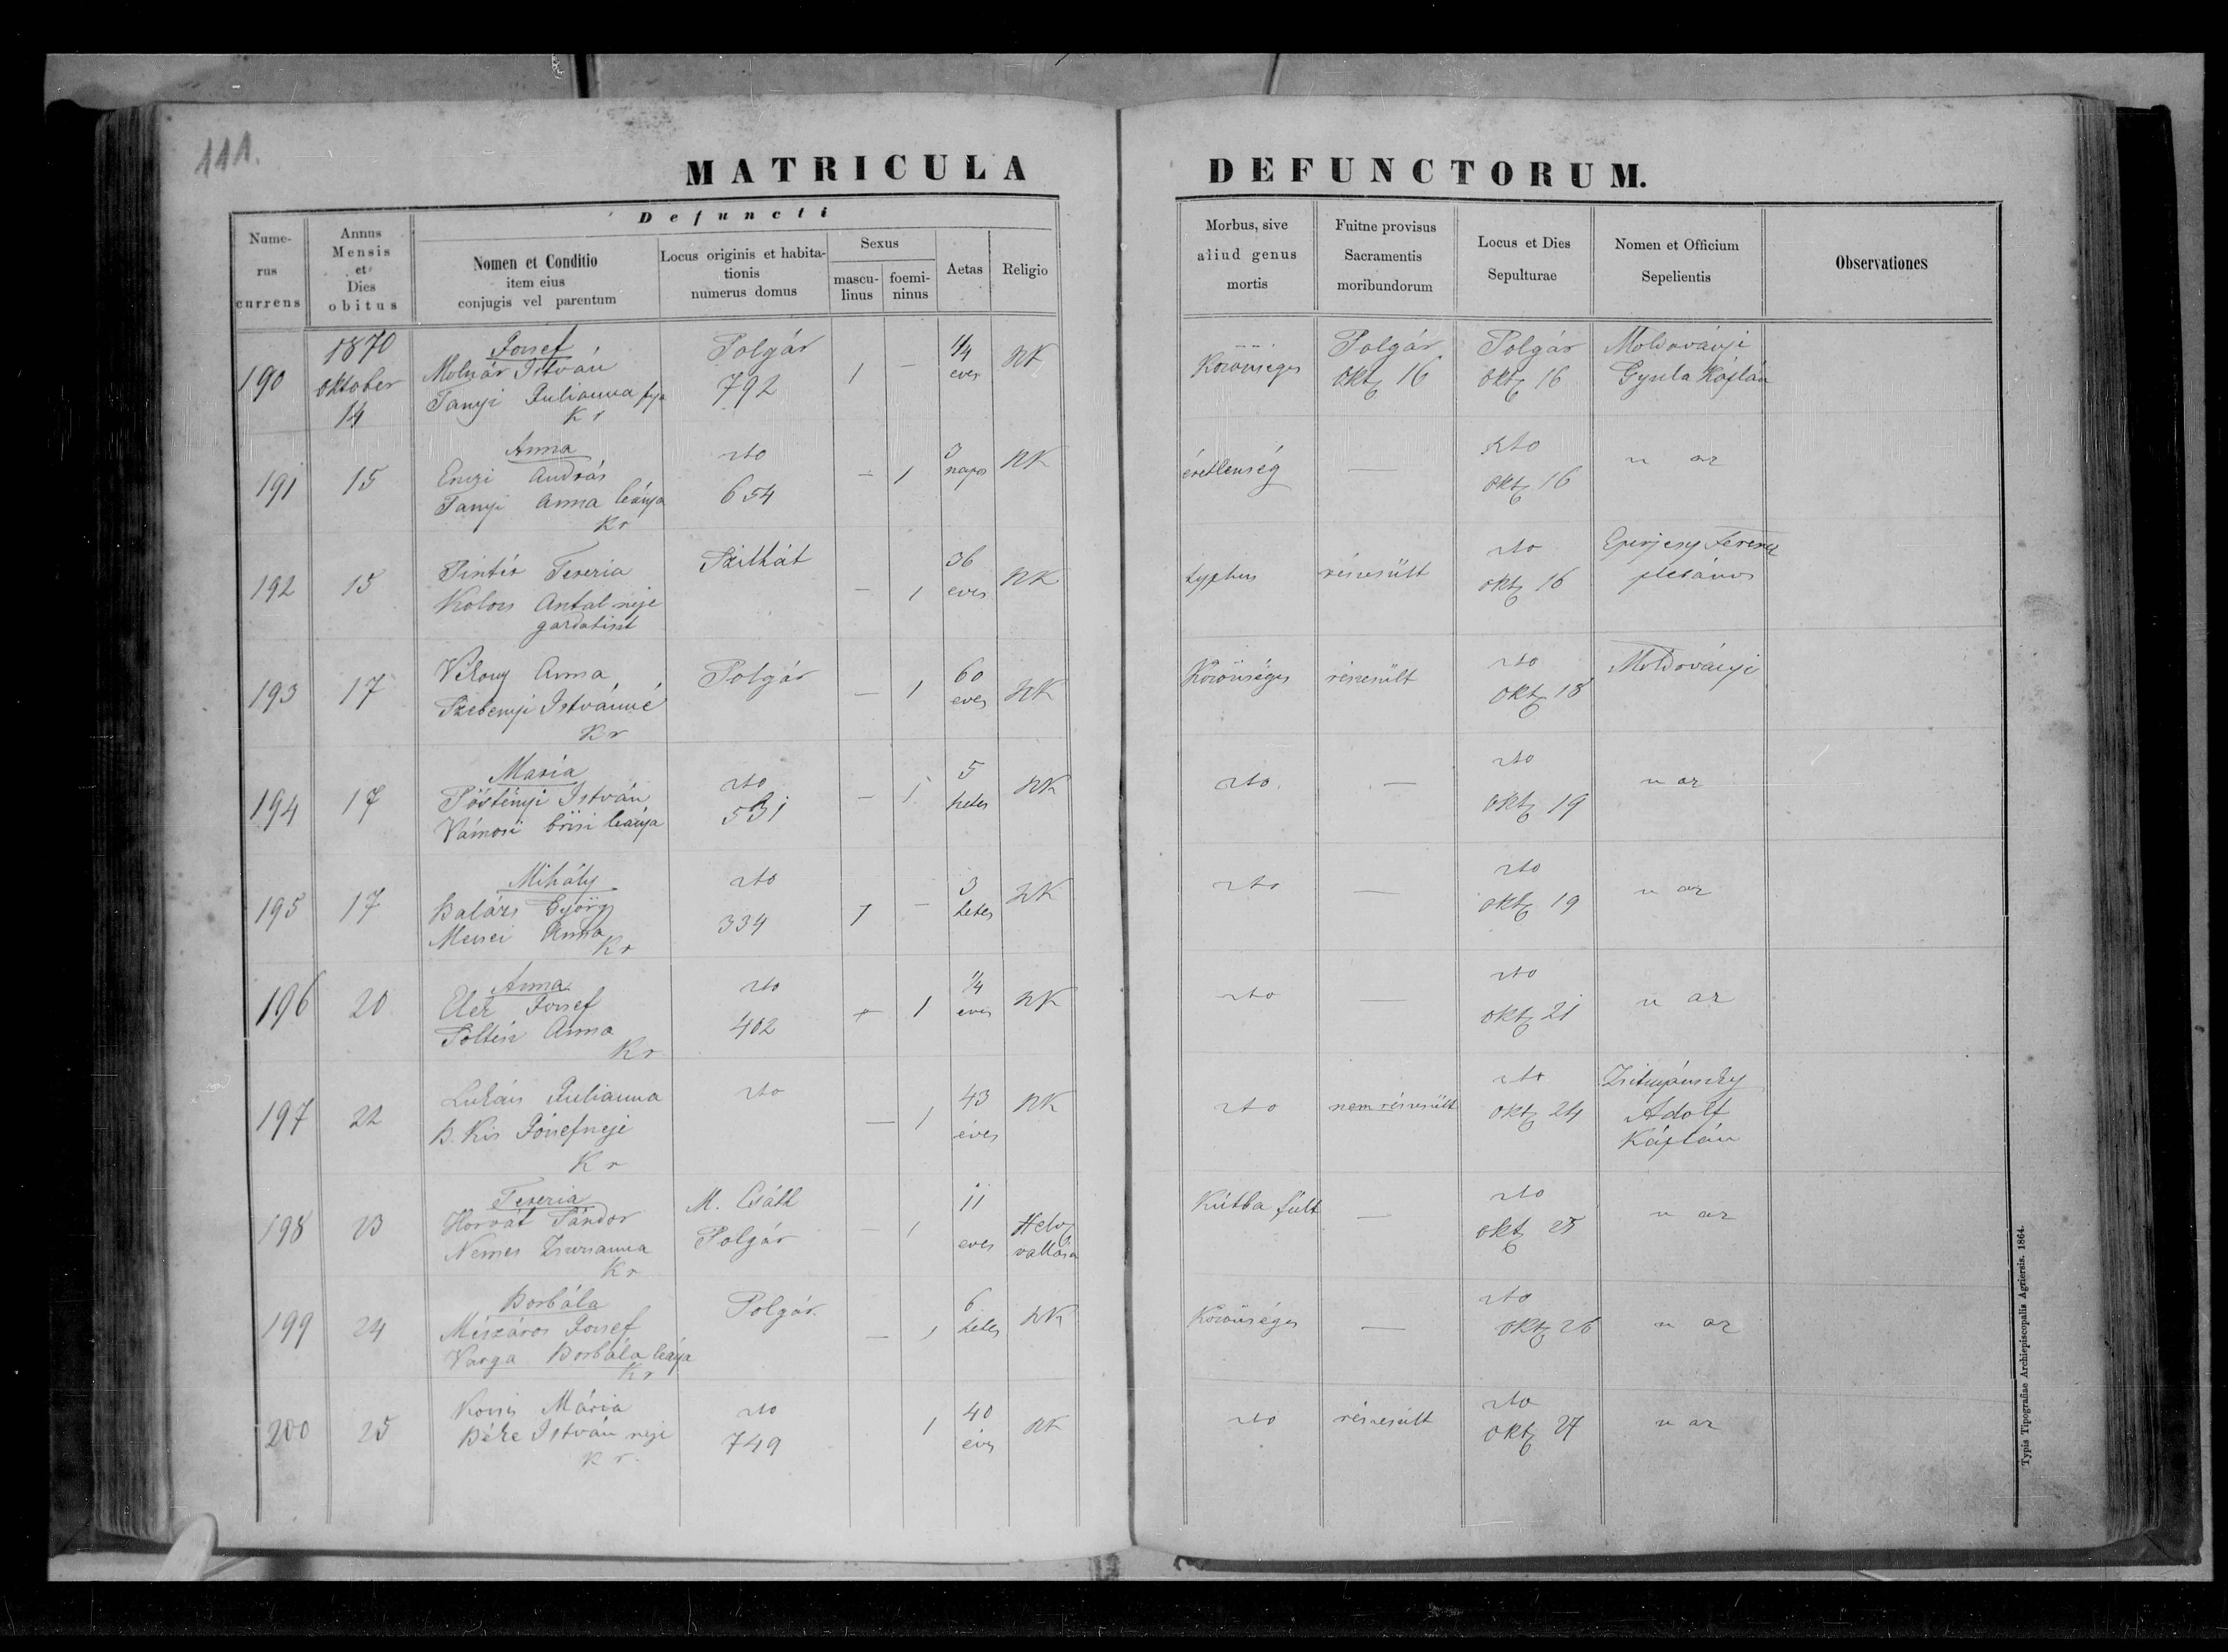 111.
MATRICULA DEFUNCTORUM.
Defuncti
Nume-
rus
currens
Annus
Mensis
et
Dies
obitus
Nomen et Conditio
item eius
conjugis vel parentum
Locus originis et habita-
tionis
numerus domus
Sexus
mascu-
linus
foemi-
ninus
Aetas
Religio
Morbus, sive
aliud genus
mortis
Fuitne provisus
Sacramentis
moribundorum
Locus et Dies
Sepulturae
Nomen et Officium
Sepelientis
Observationes
190
1870
oktober
14
József
Molnár István
Tanyi Julianna fija
Kr
Polgár
792
1 —
eves
RK
Közönséges
Polgár
okt 16
Polgár
okt 16
Moldoványi
Gyula Káplán
191
15
Anna
András
Tanyi Anna leánya
Kr
rto
654
— 1
3
napos
RK
éretlenség
—
rto
okt 16
u az
192
15
Pintér Terezia
Antal neje
Szilhát
— 1
36
eves
RK
typhus
részesült
rto
okt 16
Eperjesy Ferencz
plebános
193
17
Anna
Szebenyi Istvánné
Kr
Polgár
— 1
60
eves
RK
Közönséges
részesült
rto
okt 18
Moldoványi
194
17
Maria
Pöstényi István
Vámosi leánya
rto
531
— 1
5
hetes
RK
rto
—
rto
okt 19
u az
195
17
Mihály
Balázs György
Anna
Kr
rto
334
1 —
3
hetes
RK
rto
—
rto
okt 19
u az
196
20
Anna
Elek József
Anna
Kr
rto
402
1
1/4
eves
RK
rto
—
rto
okt 21
u az
197
22
Lukács Julianna
B. Kis József neje
Kr
rto
— 1
43
éves
RK
rto
nem részesült
rto
okt 24
Adolf
Káplán
198
23
Terezia
Horvát Sándor
Nemes Zsuzsanna
Kr
M. Csáth
Polgár
— 1
11
eves
Helv
vallásu
Kútba fúlt
—
rto
okt 25
u az
199
24
Borbála
Mészáros József
Varga Borbála leánya
Kr
Polgár
— 1
6
hetes
RK
Közönséges
—
rto
okt 26
u az
200
25
Mária
Béke István neje
Kr
rto
749
1
40
éves
RK
rto
részesült
rto
okt 27
u az
Typis Tipografiae Archiepiscopalis Agriensis. 1864.